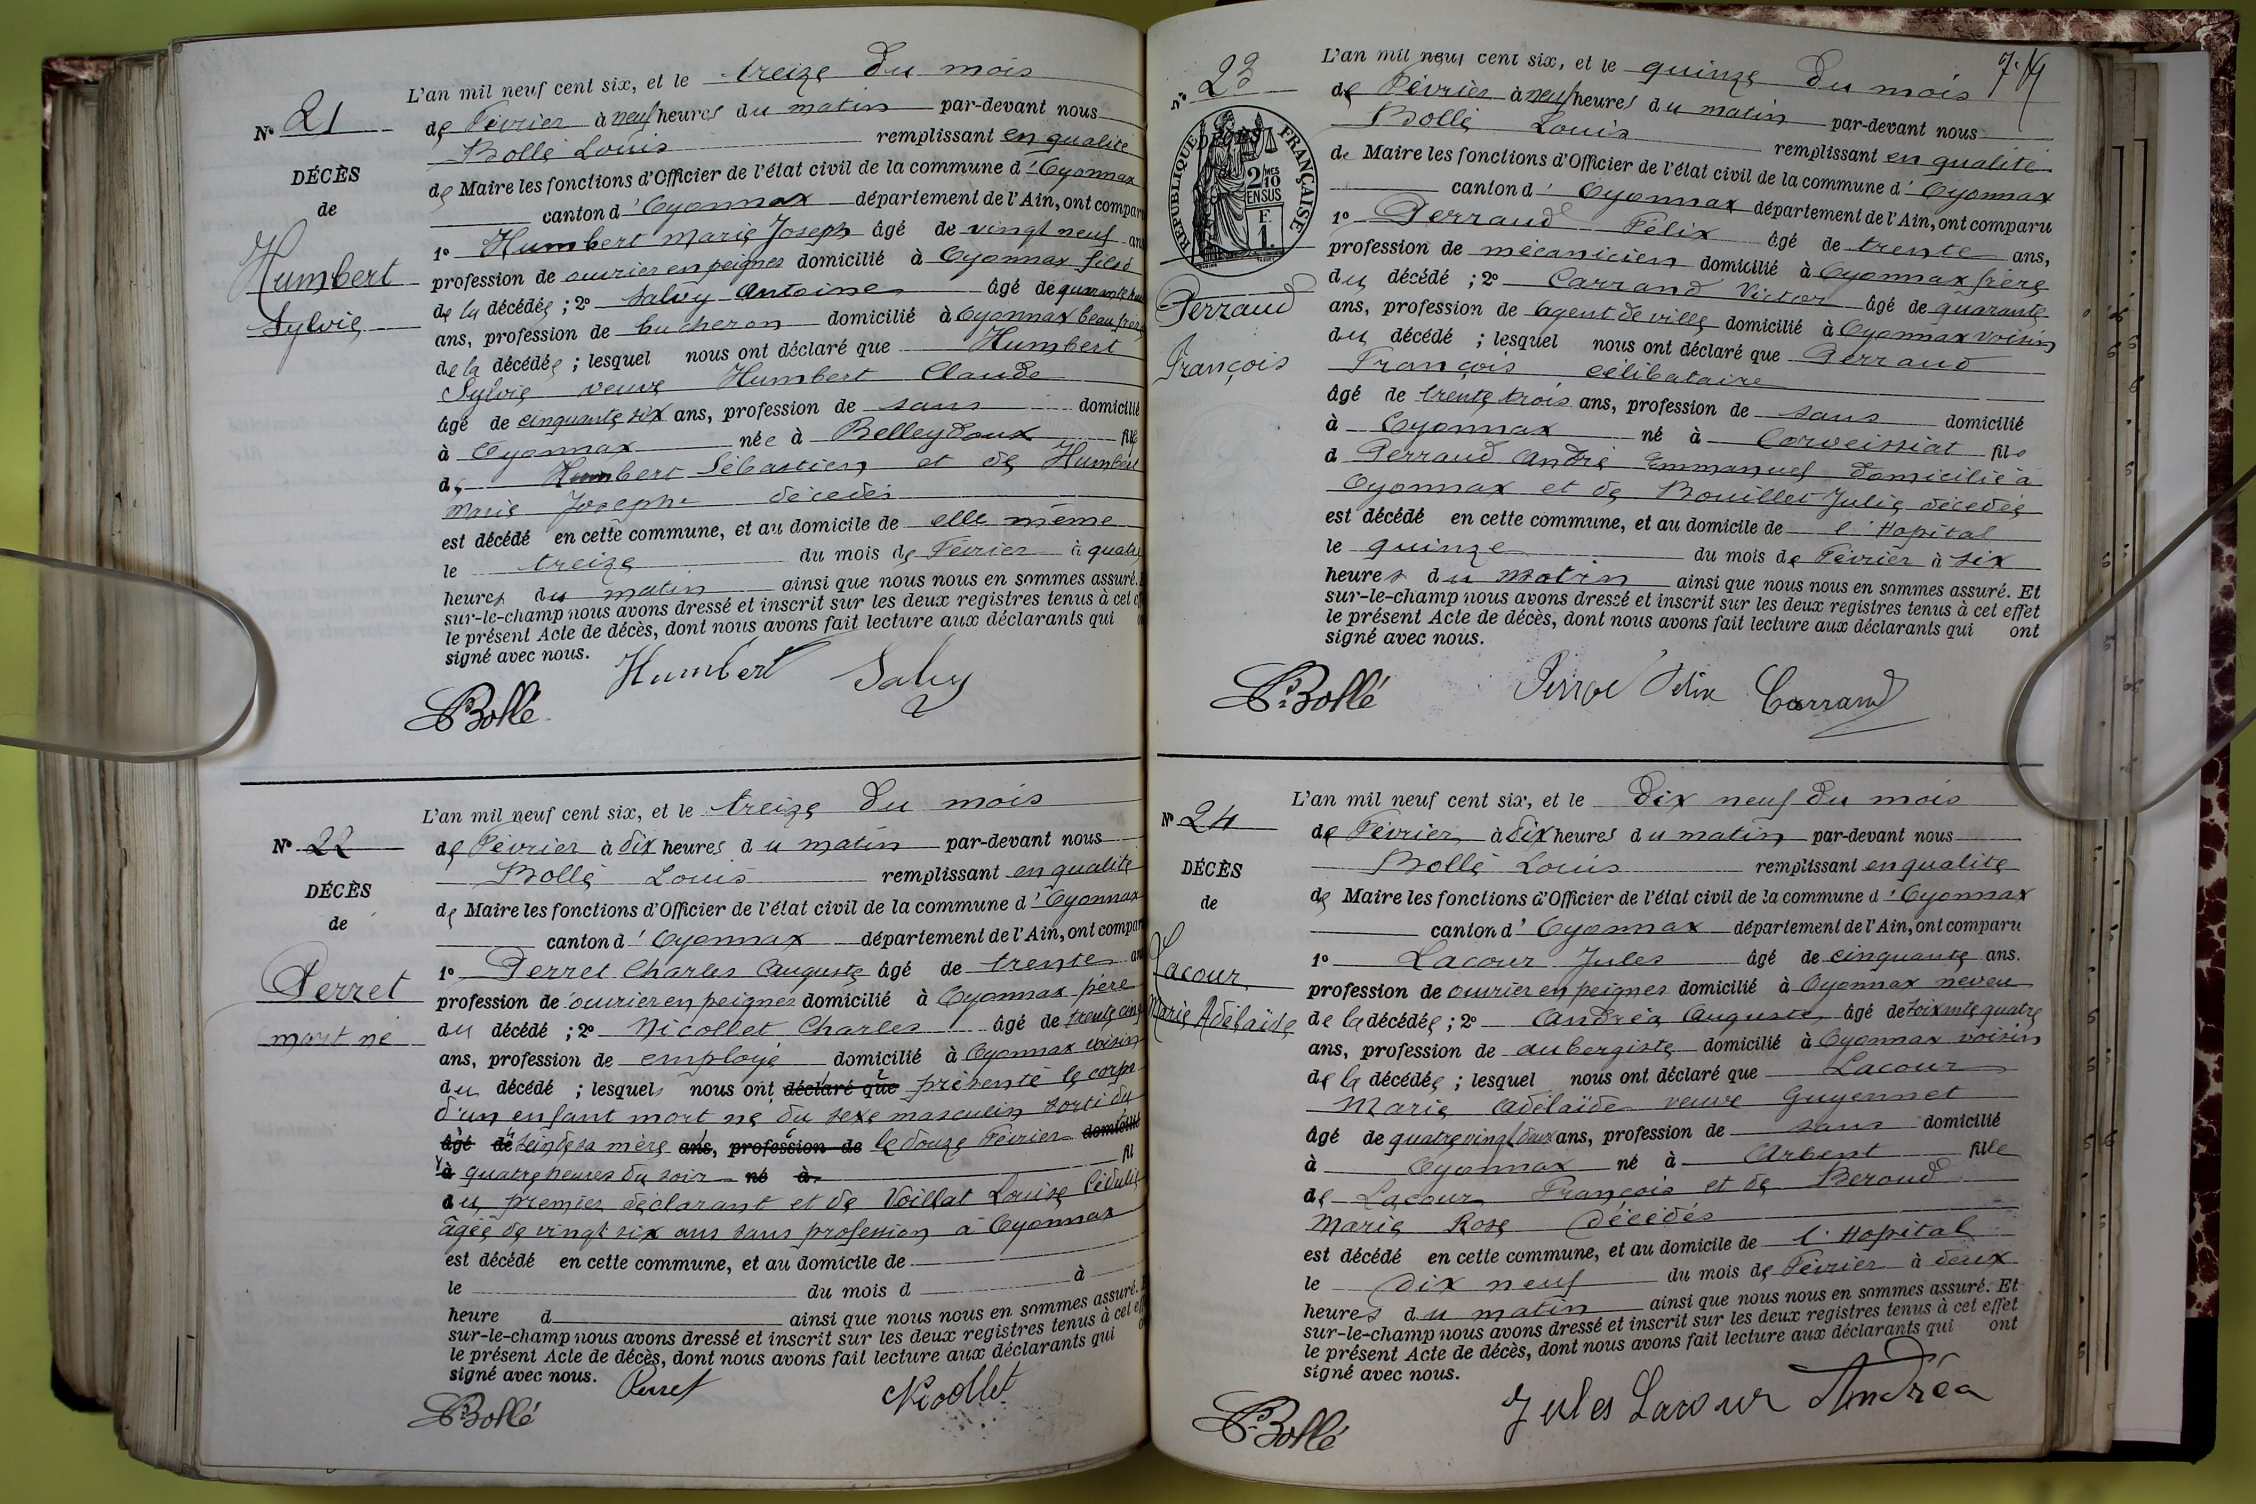 L'an mil neuf cent six, et le treize du mois
N° 21
de Février à neuf heures du matin par-devant nous
Bollé Louis remplissant en qualité
DÉCÈS
de
de Maire les fonctions d'Officier de l'état civil de la commune d'Oyonnax
canton d'Oyonnax département de l'Ain, ont compar
Humbert
Sylvie
1° Humbert Marie Joseph âgé de vingt neuf an
profession de ouvrier en peignes domicilié à Oyonnax fils
de la décédée ; 2° Salvy Antoine âgé de quarante
ans, profession de bucheron domicilié à Oyonnax beau frère
de la décédée ; lesquel nous ont déclaré que Humbert
Sylvie veuve Humbert Claude
âgé de cinquante six ans, profession de sans domicilié
à Oyonnax née à Belleydoux fille
de Humbert Sébastien et de Humbert
Marie Josephe décédés
est décédé en cette commune, et au domicile de elle même
le treize du mois de Février à quatre
heures du matin ainsi que nous nous en sommes assuré.
sur-le-champ nous avons dressé et inscrit sur les deux registres tenus à cet
le présent Acte de décès, dont nous avons fait lecture aux déclarants qui
signé avec nous.
Humbert Salvy
Bollé
L'an mil neuf cent six, et le treize du mois
N° 22
de Février à dix heures du matin par-devant nous
Bollé Louis remplissant en qualité
DÉCÈS
de
de Maire les fonctions d'Officier de l'état civil de la commune d'Oyonnax
canton d'Oyonnax département de l'Ain, ont compar
Perret
mort né
1° Perret Charles Auguste âgé de trente an
profession de ouvrier en peignes domicilié à Oyonnax père
du décédé ; 2° Nicollet Charles âgé de trente cinq
ans, profession de employé domicilié à Oyonnax voisin
du décédé ; lesquels nous ont déclaré que présenté le corps
d'un enfant mort né du sexe masculin sorti du
âgé de sein de sa mère ans, profession de le douze Février domicilié
à quatre heures du soir né à fil
du premier déclarant et de Voillat Louise
âgée de vingt six ans sans profession à Oyonnax
est décédé en cette commune, et au domicile de
le du mois d à
heure d ainsi que nous nous en sommes assuré.
sur-le-champ nous avons dressé et inscrit sur les deux registres tenus à cet
le présent Acte de décès, dont nous avons fait lecture aux déclarants qui
signé avec nous.
Perret Nicollet
Bollé
L'an mil neuf cent six, et le quinze du mois
N° 23
de Février à neuf heures du matin par-devant nous
Bollé Louis remplissant en qualité
DÉCÈS
RÉPUBLIQUE FRANÇAISE
2/10 EN SUS
F. 1.
de Maire les fonctions d'Officier de l'état civil de la commune d'Oyonnax
canton d'Oyonnax département de l'Ain, ont comparu
Perraud
François
1° Perraud Félix âgé de trente ans,
profession de mécanicien domicilié à Oyonnax frère
du décédé ; 2° Carrand Victor âgé de quarante
ans, profession de agent de ville domicilié à Oyonnax voisin
du décédé ; lesquel nous ont déclaré que Perraud
François célibataire
âgé de trente trois ans, profession de sans domicilié
à Oyonnax né à Corveissiat fils
d Perraud André Emmanuel domicilié à
Oyonnax et de Bouillet Julie décédée
est décédé en cette commune, et au domicile de l'Hopital
le quinze du mois de Février à six
heures du matin ainsi que nous nous en sommes assuré. Et
sur-le-champ nous avons dressé et inscrit sur les deux registres tenus à cet effet
le présent Acte de décès, dont nous avons fait lecture aux déclarants qui ont
signé avec nous.
Bollé Félix Carrand
L'an mil neuf cent six, et le dix neuf du mois
N° 24
de Février à dix heures du matin par-devant nous
Bollé Louis remplissant en qualité
DÉCÈS
de
de Maire les fonctions d'Officier de l'état civil de la commune d'Oyonnax
canton d'Oyonnax département de l'Ain, ont comparu
Lacour
Marie Adélaïde
1° Lacour Jules âgé de cinquante ans.
profession de ouvrier en peignes domicilié à Oyonnax neveu
de la décédée ; 2° Andréa Auguste âgé de soixante quatre
ans, profession de aubergiste domicilié à Oyonnax voisin
de la décédée ; lesquel nous ont déclaré que Lacour
Marie Adélaïde veuve Guyennet
âgé de quatre vingt deux ans, profession de sans domicilié
à Oyonnax né à Arbent fille
de Lacour François et de Beroud
Marie Rose décédés
est décédé en cette commune, et au domicile de l'Hopital
le dix neuf du mois de Février à deux
heures du matin ainsi que nous nous en sommes assuré. Et
sur-le-champ nous avons dressé et inscrit sur les deux registres tenus à cet effet
le présent Acte de décès, dont nous avons fait lecture aux déclarants qui ont
signé avec nous.
Jules Lacour Andréa
Bollé